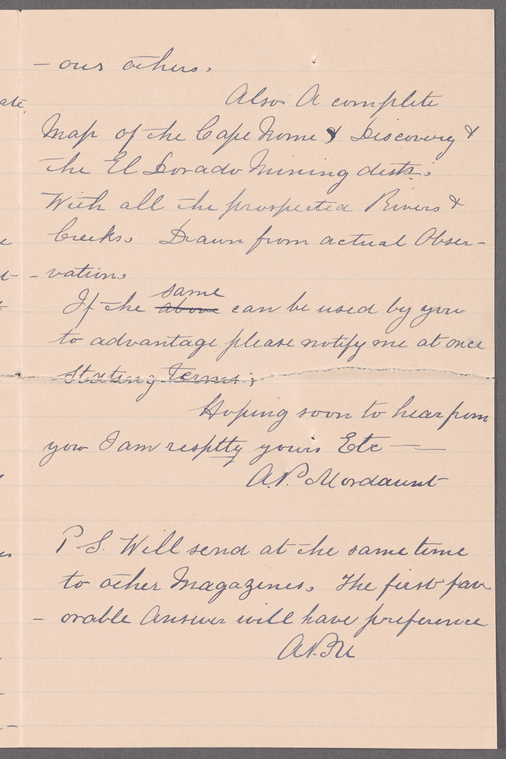 - our others.
Also. A complete
Map of the Cape Nome & Discovery &
the El Dorado Mining dists.
With all the prospected Rivers &
Creeks. Drawn from actual Obser-
- vation.
same
If the above can be used by you
to advantage please notify me at once
stating terms.
Hoping soon to hear from
you I am resptty yours Etc —
A.P. Mordaunt
P S. Will send at the same time
to other Magazines. The first fav
- orable Answer will have preference
A.P.M